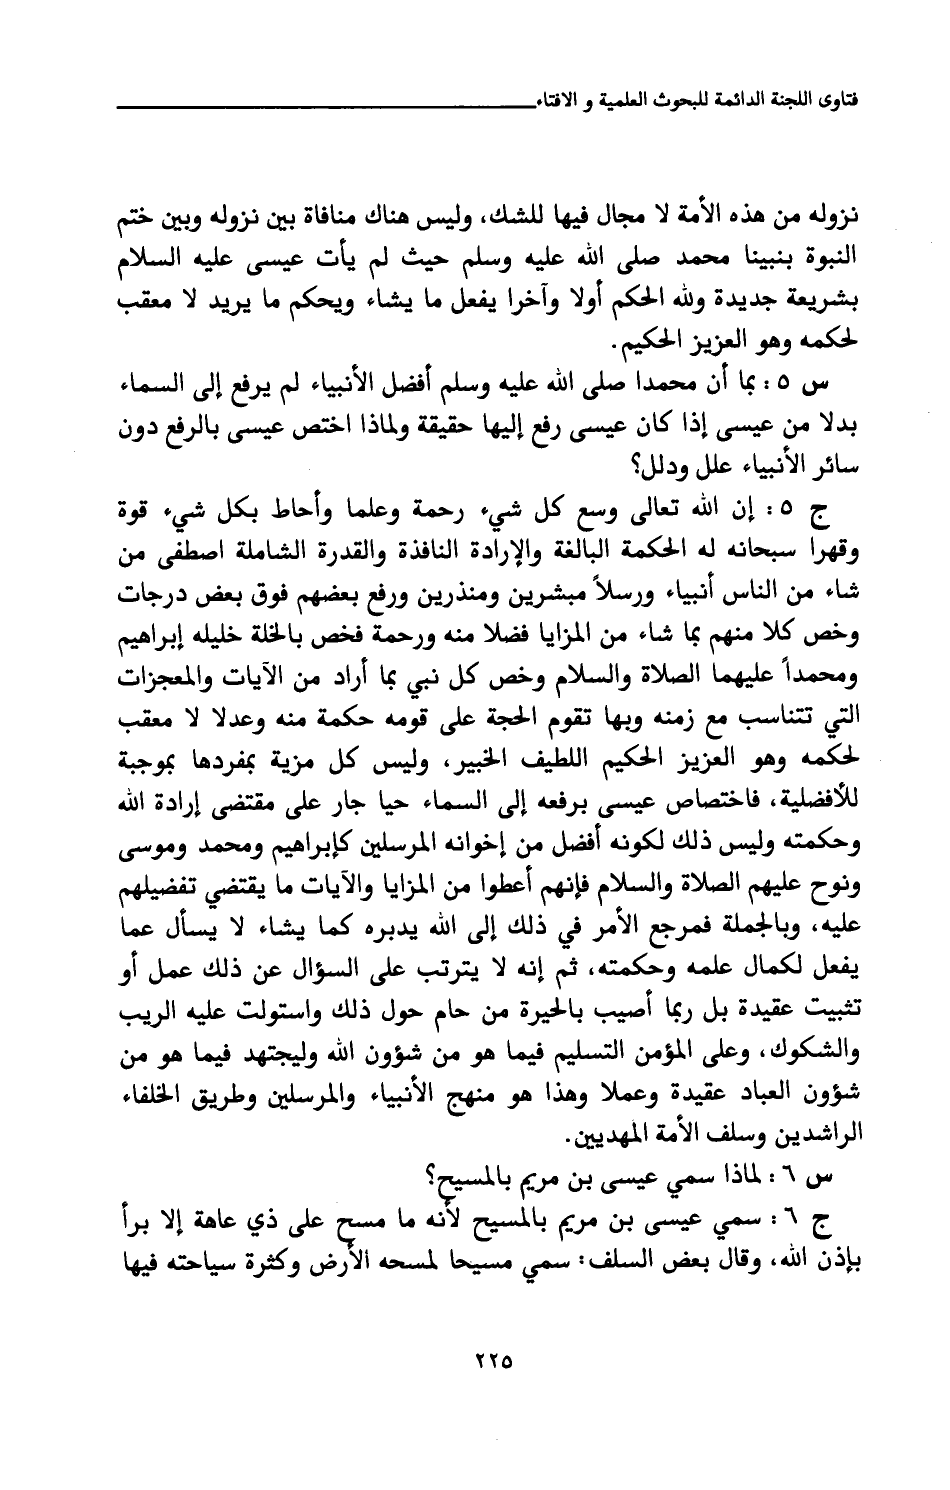 فتاوى اللجنة الدائمة للبحوث العلمية و الافتاء
نزوله من هذه الأمة لا مجال فيها للشك، وليس هناك منافاة بين نزوله وبين ختم
النبوة بنبينا محمد صلى الله عليه وسلم حيث لم يأت عيسى عليه السلام
بشريعة جديدة ولله الحكم أولا وآخرا يفعل ما يشاء ويحكم ما يريد لا معقب
لحكمه وهو العزيز الحكيم.
س ٥ : بما أن محمدا صلى الله عليه وسلم أفضل الأنبياء لم يرفع إلى السماء
بدلا من عيسى إذا كان عيسى رفع إليها حقيقة ولماذا اختص عيسى بالرفع دون
سائر الأنبياء علل ودلل؟
ج ٥ : إن الله تعالى وسع كل شيء رحمة وعلما وأحاط بكل شيء قوة
وقهرا سبحانه له الحكمة البالغة والإرادة النافذة والقدرة الشاملة اصطفى من
شاء من الناس أنبياء ورسلاً مبشرين ومنذرين ورفع بعضهم فوق بعض درجات
وخص كلا منهم بما شاء من المزايا فضلا منه ورحمة فخص بالخلة خليله إبراهيم
ومحمداً عليهما الصلاة والسلام وخص كل نبي بما أراد من الآيات والمعجزات
التي تتناسب مع زمنه وبها تقوم الحجة على قومه حكمة منه وعدلا لا معقب
لحكمه وهو العزيز الحكيم اللطيف الخبير، وليس كل مزية بمفردها بموجبة
للأفضلية، فاختصاص عيسى برفعه إلى السماء حيا جار على مقتضى إرادة الله
وحكمته وليس ذلك لكونه أفضل من إخوانه المرسلين كإبراهيم ومحمد وموسى
ونوح عليهم الصلاة والسلام فإنهم أعطوا من المزايا والآيات ما يقتضي تفضيلهم
عليه، وبالجملة فمرجع الأمر في ذلك إلى الله يدبره كما يشاء لا يسأل عما
يفعل لكمال علمه وحكمته، ثم إنه لا يترتب على السؤال عن ذلك عمل أو
تثبيت عقيدة بل ربما أصيب بالحيرة من حام حول ذلك واستولت عليه الريب
والشكوك، وعلى المؤمن التسليم فيما هو من شؤون الله وليجتهد فيما هو من
شؤون العباد عقيدة وعملا وهذا هو منهج الأنبياء والمرسلين وطريق الخلفاء
الراشدين وسلف الأمة المهديين.
س ٦ : لماذا سمي عيسى بن مريم بالمسيح؟
ج ٦ : سمي عيسى بن مريم بالمسيح لأنه ما مسح على ذي عاهة إلا برأ
بإذن الله، وقال بعض السلف: سمي مسيحا لمسحه الأرض وكثرة سياحته فيها
٢٢٥